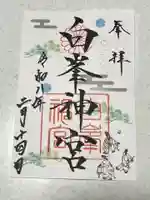 奉拝
白峯神宮
令和八年
二月十四日